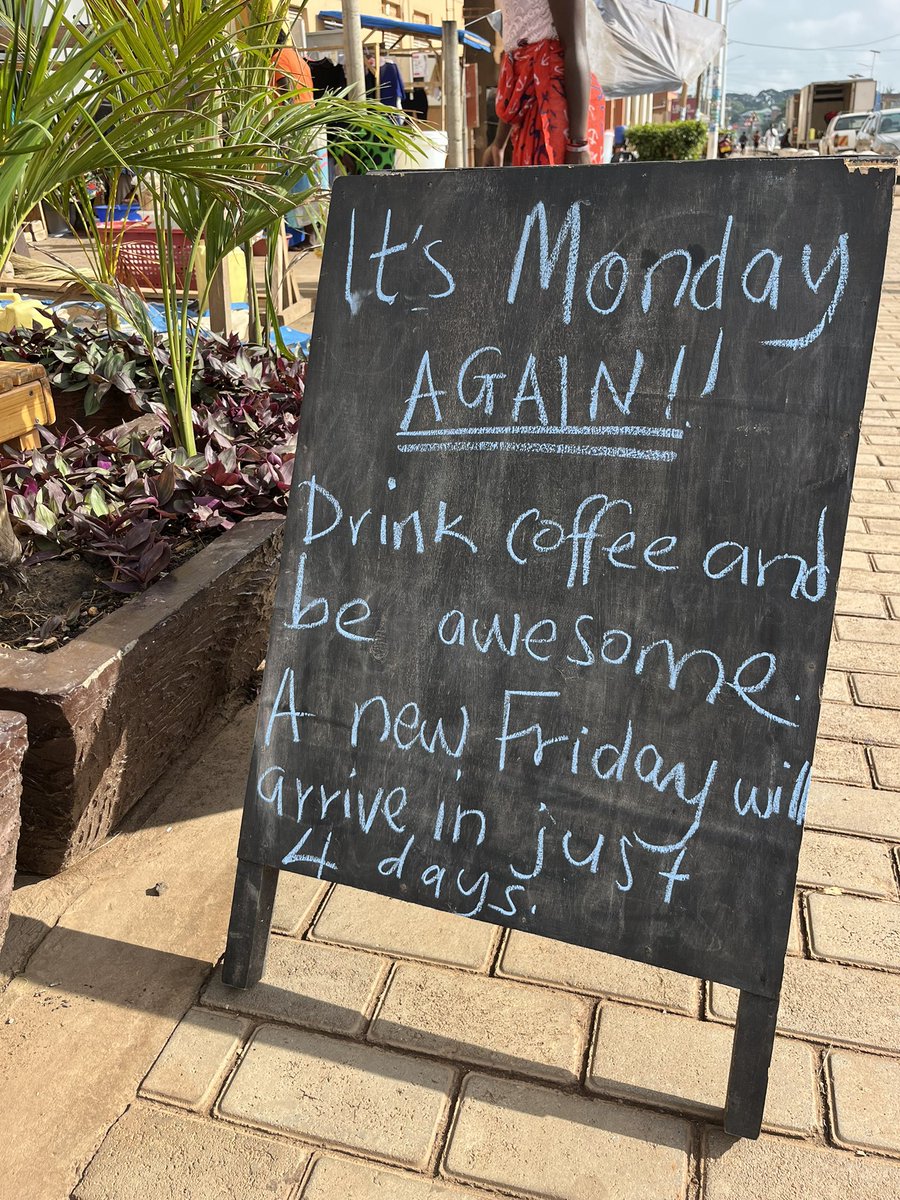 It's Monday
AGAIN!!
Drink coffee and
be awesome.
A new Friday will
arrive in just
4 days.